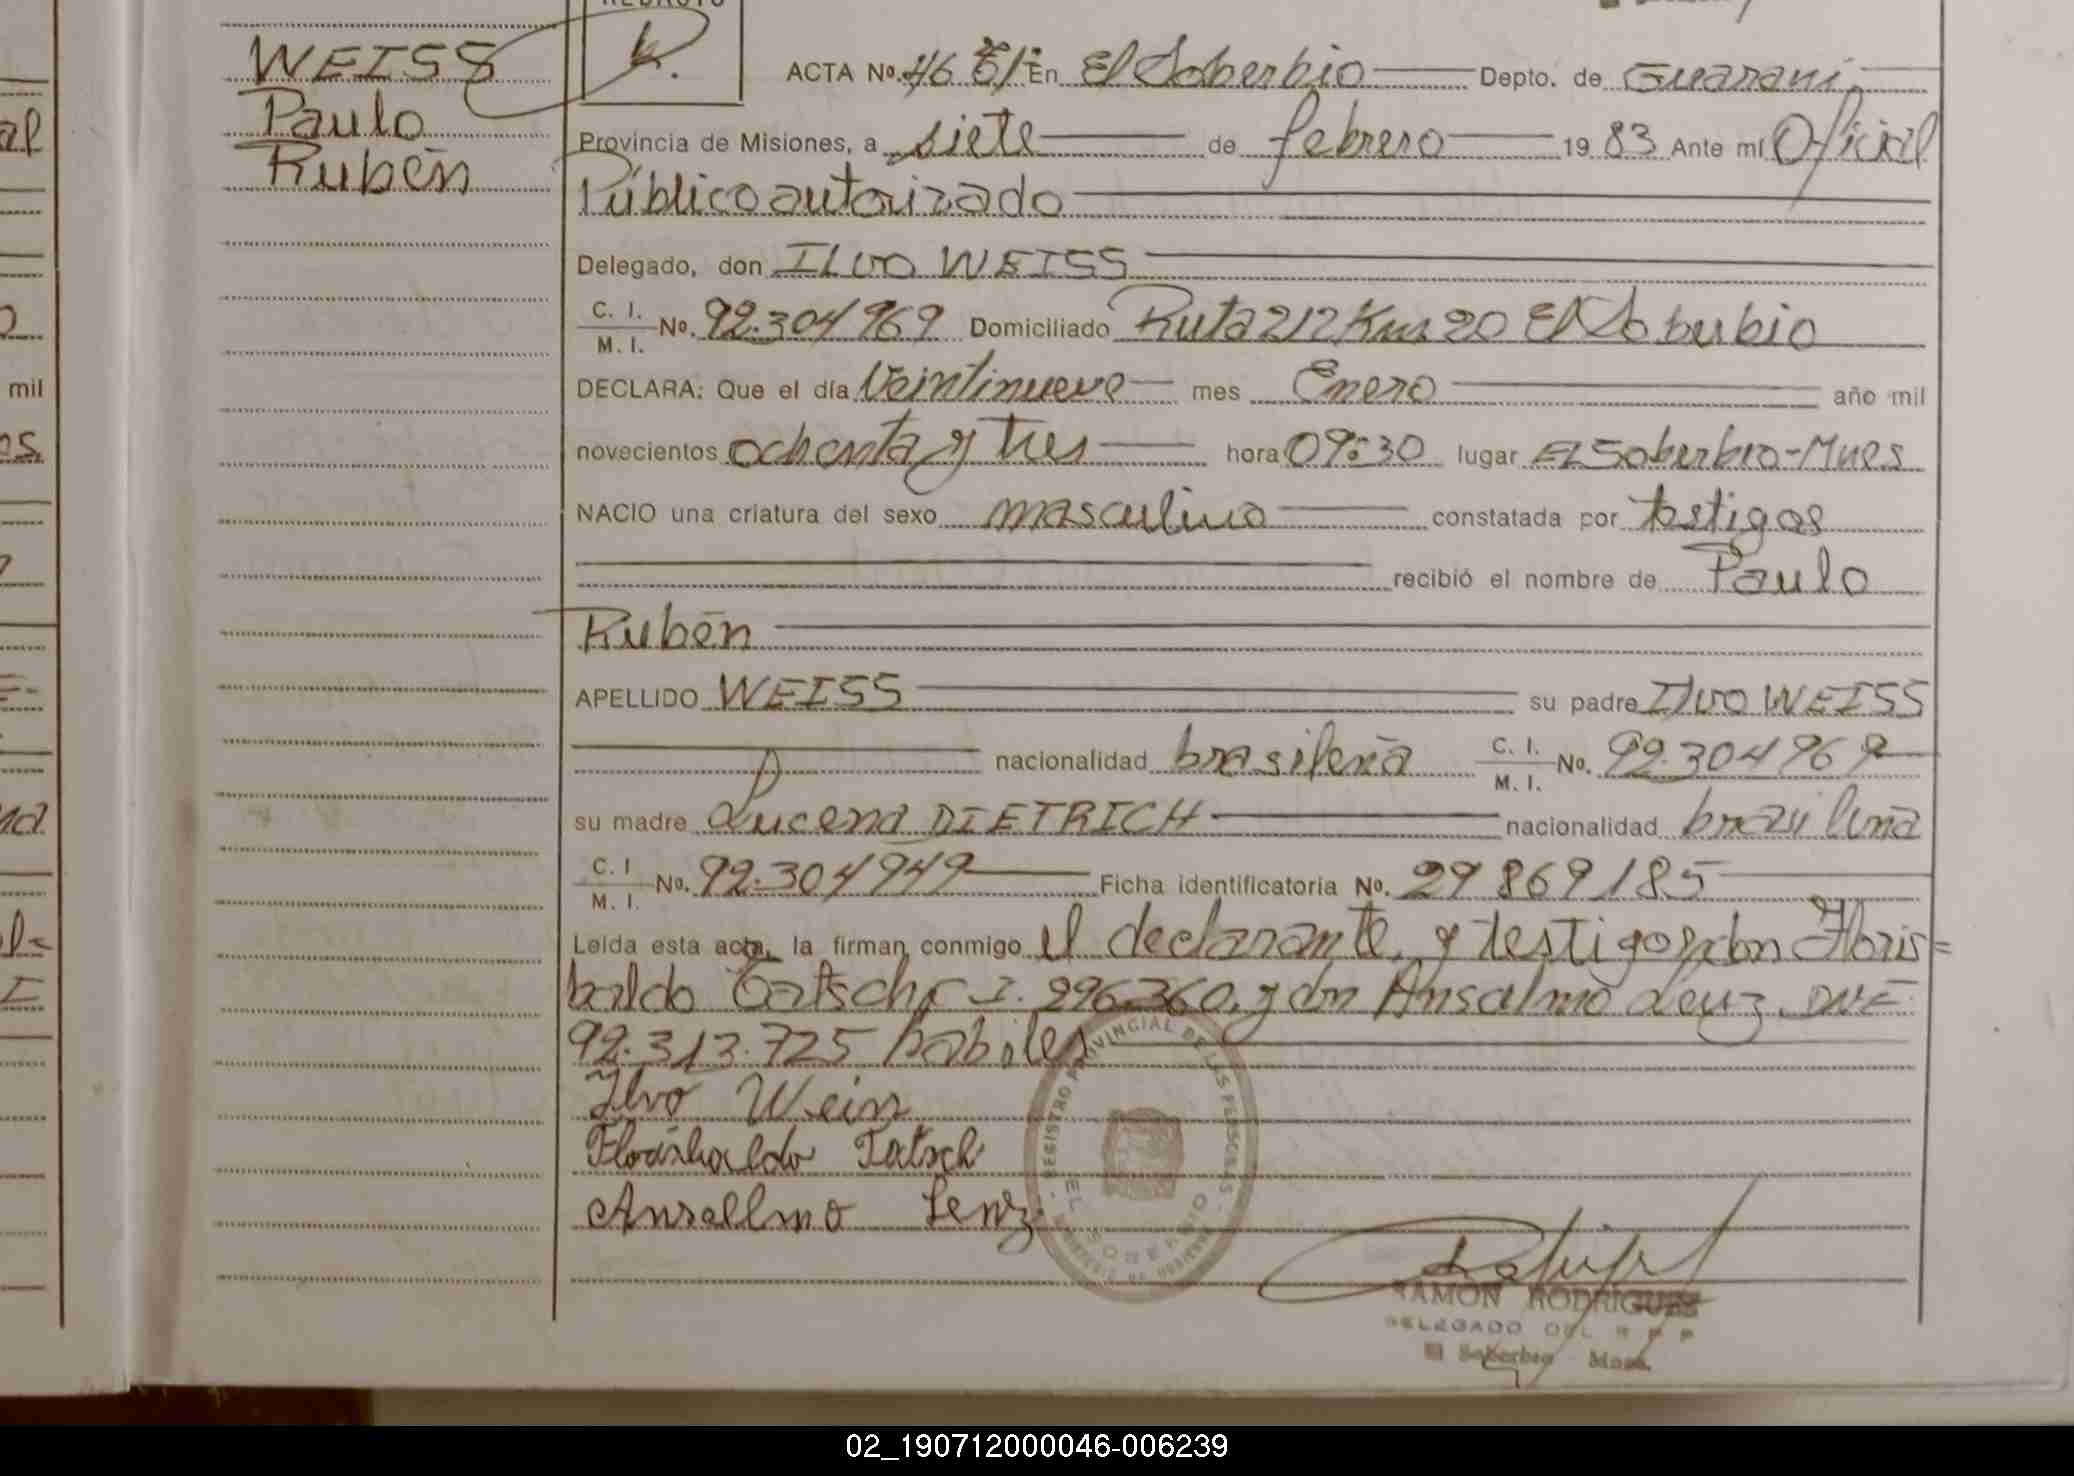 WEISS
Paulo
Rubén
ACTA Nº. 46 En El Soberbio Depto. de Guaraní
Provincia de Misiones, a siete de febrero 19 83 Ante mí Oficial
Público autorizado
Delegado, don ILVO WEISS
C. I. / M. I. Nº. 92.304969 Domiciliado Ruta 212 Km 20 El Soberbio
DECLARA: Que el día Veintinueve mes Enero año mil
novecientos ochenta y tres hora 09:30 lugar El Soberbio-Mnes
NACIO una criatura del sexo masculino constatada por testigos
recibió el nombre de Paulo
Rubén
APELLIDO WEISS su padre Ilvo WEISS
nacionalidad brasileña C. I. / M. I. Nº. 92.304969
su madre Lucena DIETRICH nacionalidad brazileña
C. I / M. I. Nº. 92.304949 Ficha identificatoria Nº. 29869185
Leída esta acta, la firman conmigo el declarante, y testigos don Floris=
baldo Tatsch C I. 296.360, y don Anselmo Lenz DNI
92.313.725 habiles
Ilvo Weiss
Florisbaldo Tatsch
Anselmo Lenz
REGISTRO PROVINCIAL DE LAS PERSONAS
EL SOBERBIO
RAMON RODRIGUES
DELEGADO DEL R P P
El Soberbio Mnes.
02_190712000046-006239